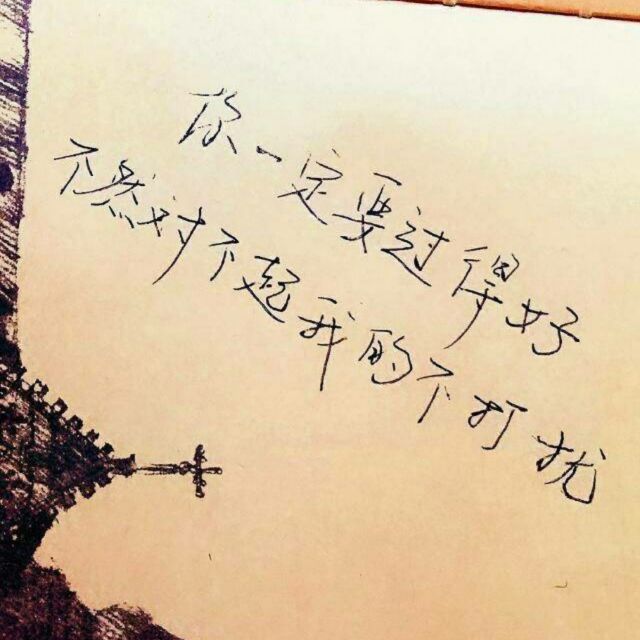 你一定要过得好
不然对不起我的不打扰